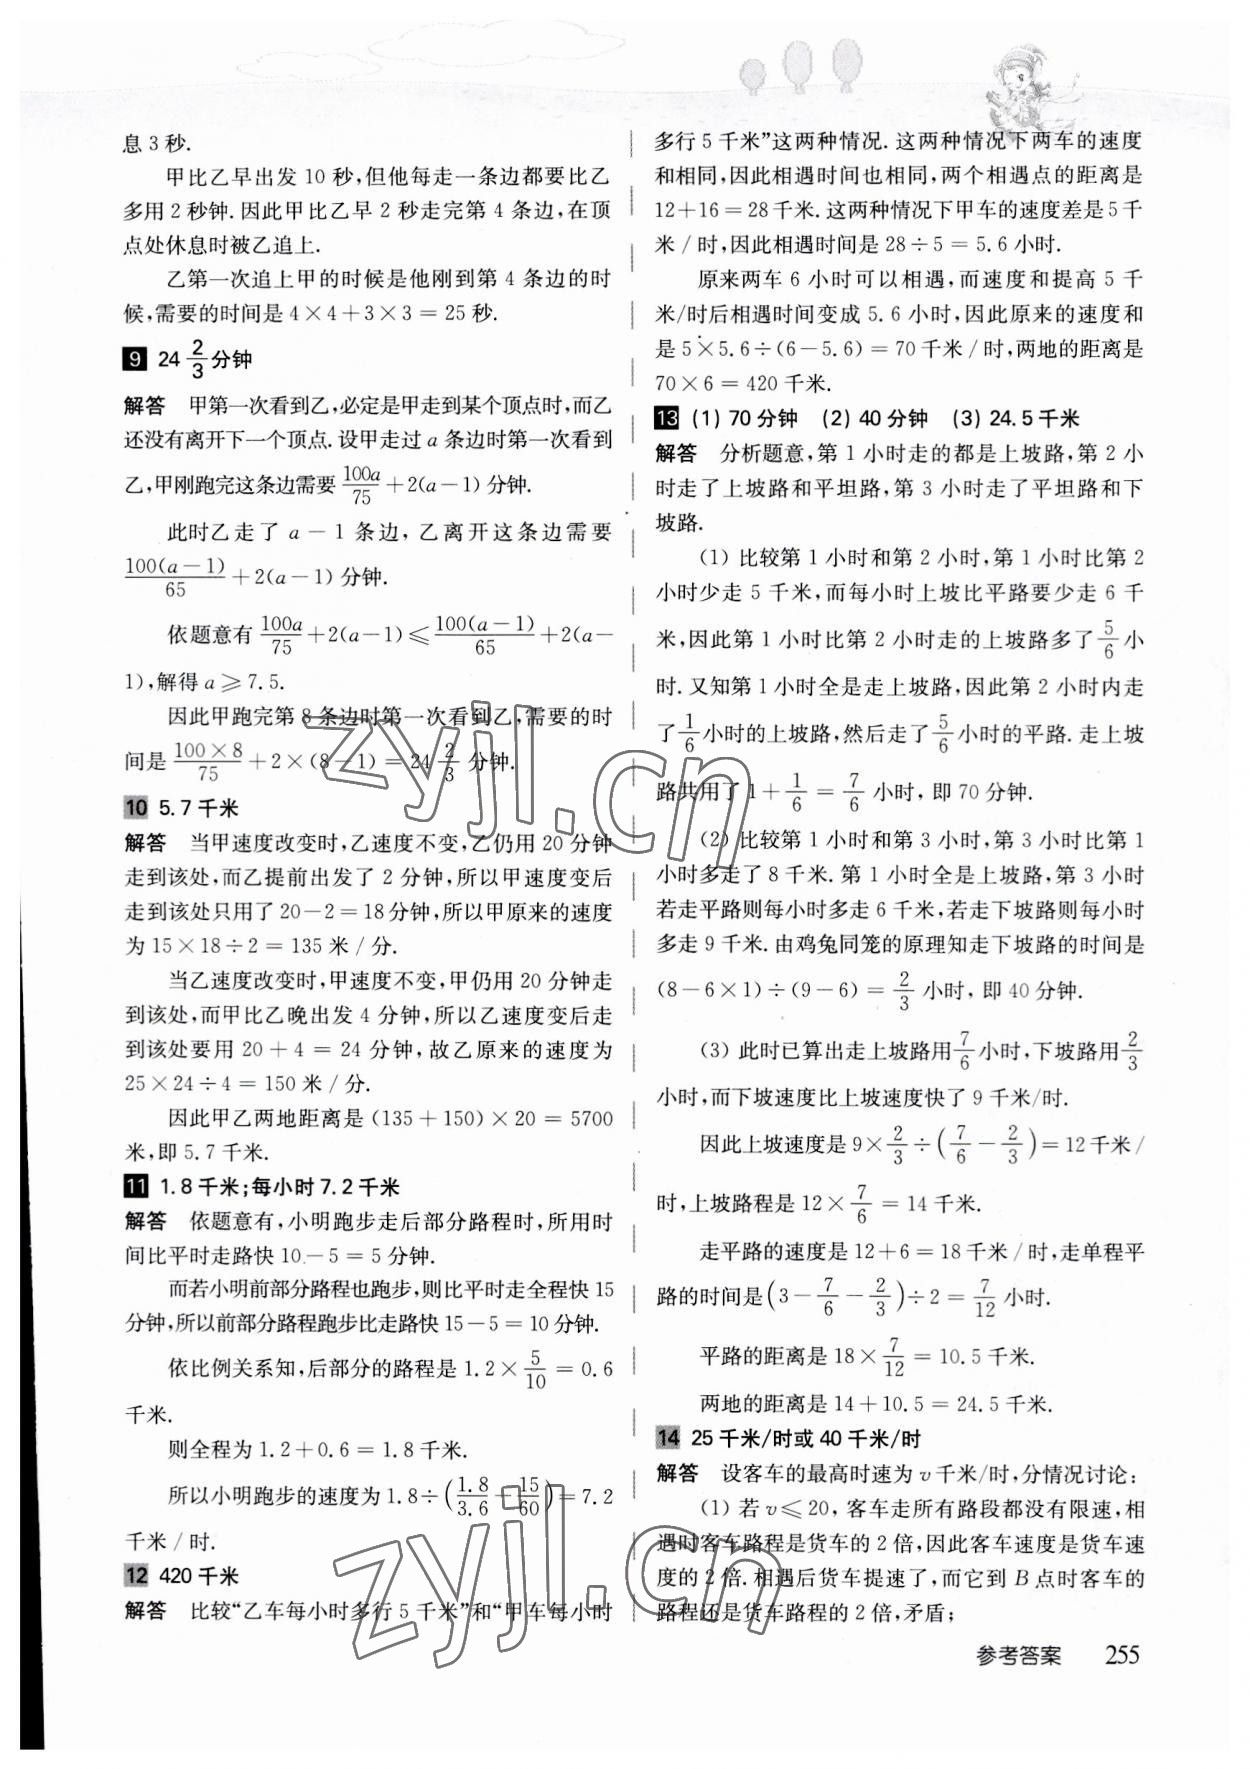 息3秒.
甲比乙早出发 10 秒,但他每走一条边都要比乙
多用2秒钟.因此甲比乙早2秒走完第4条边,在顶
点处休息时被乙追上.
乙第一次追上甲的时候是他刚到第4条边的时
候,需要的时间是 4×4+3×3=25秒.
9 24 2/3 分钟
解答 甲第一次看到乙,必定是甲走到某个顶点时,而乙
还没有离开下一个顶点.设甲走过a条边时第一次看到
乙,甲刚跑完这条边需要 100a/75 +2(a-1)分钟.
此时乙走了 a-1 条边,乙离开这条边需要
100(a-1)/65 +2(a-1)分钟.
依题意有 100a/75 +2(a-1)≤ 100(a-1)/65 +2(a-
1),解得a≥7.5.
因此甲跑完第8条边时第一次看到乙,需要的时
间是 100×8/75 +2×(8-1)=24 2/3 分钟.
10 5.7千米
解答 当甲速度改变时,乙速度不变,乙仍用20分钟
走到该处,而乙提前出发了2分钟,所以甲速度变后
走到该处只用了20-2=18分钟,所以甲原来的速度
为15×18÷2=135米/分.
当乙速度改变时,甲速度不变,甲仍用20分钟走
到该处,而甲比乙晚出发4分钟,所以乙速度变后走
到该处要用 20+4=24分钟,故乙原来的速度为
25×24÷4=150米/分.
因此甲乙两地距离是(135+150)×20=5700
米,即5.7千米.
11 1.8千米;每小时7.2千米
解答 依题意有,小明跑步走后部分路程时,所用时
间比平时走路快10-5=5分钟.
而若小明前部分路程也跑步,则比平时走全程快15
分钟,所以前部分路程跑步比走路快15-5=10分钟.
依比例关系知,后部分的路程是1.2× 5/10 =0.6
千米.
则全程为1.2+0.6=1.8千米.
所以小明跑步的速度为1.8÷(1.8/3.6 - 15/60)=7.2
千米/时.
12 420千米
解答 比较“乙车每小时多行5千米”和“甲车每小时
多行5千米”这两种情况.这两种情况下两车的速度
和相同,因此相遇时间也相同,两个相遇点的距离是
12+16=28千米.这两种情况下甲车的速度差是5千
米/时,因此相遇时间是28÷5=5.6小时.
原来两车6小时可以相遇,而速度和提高5千
米/时后相遇时间变成5.6小时,因此原来的速度和
是5×5.6÷(6-5.6)=70千米/时,两地的距离是
70×6=420千米.
13 (1)70分钟 (2)40分钟 (3)24.5千米
解答 分析题意,第1小时走的都是上坡路,第2小
时走了上坡路和平坦路,第3小时走了平坦路和下
坡路.
(1)比较第1小时和第2小时,第1小时比第2
小时少走5千米,而每小时上坡比平路要少走6千
米,因此第1小时比第2小时走的上坡路多了 5/6 小
时.又知第1小时全是走上坡路,因此第2小时内走
了 1/6 小时的上坡路,然后走了 5/6 小时的平路.走上坡
路共用了1+ 1/6 = 7/6 小时,即70分钟.
(2)比较第1小时和第3小时,第3小时比第1
小时多走了8千米.第1小时全是上坡路,第3小时
若走平路则每小时多走6千米,若走下坡路则每小时
多走9千米.由鸡兔同笼的原理知走下坡路的时间是
(8-6×1)÷(9-6)= 2/3 小时,即40分钟.
(3)此时已算出走上坡路用 7/6 小时,下坡路用 2/3
小时,而下坡速度比上坡速度快了9千米/时.
因此上坡速度是9× 2/3 ÷(7/6 - 2/3)=12千米/
时,上坡路程是12× 7/6 =14千米.
走平路的速度是12+6=18千米/时,走单程平
路的时间是(3- 7/6 - 2/3)÷2= 7/12 小时.
平路的距离是18× 7/12 =10.5千米.
两地的距离是14+10.5=24.5千米.
14 25千米/时或40千米/时
解答 设客车的最高时速为v千米/时,分情况讨论:
(1)若v≤20,客车走所有路段都没有限速,相
遇时客车路程是货车的2倍,因此客车速度是货车速
度的2倍.相遇后货车提速了,而它到B点时客车的
路程还是货车路程的2倍,矛盾;
参考答案 255
zyjl.cn
zyjl.cn